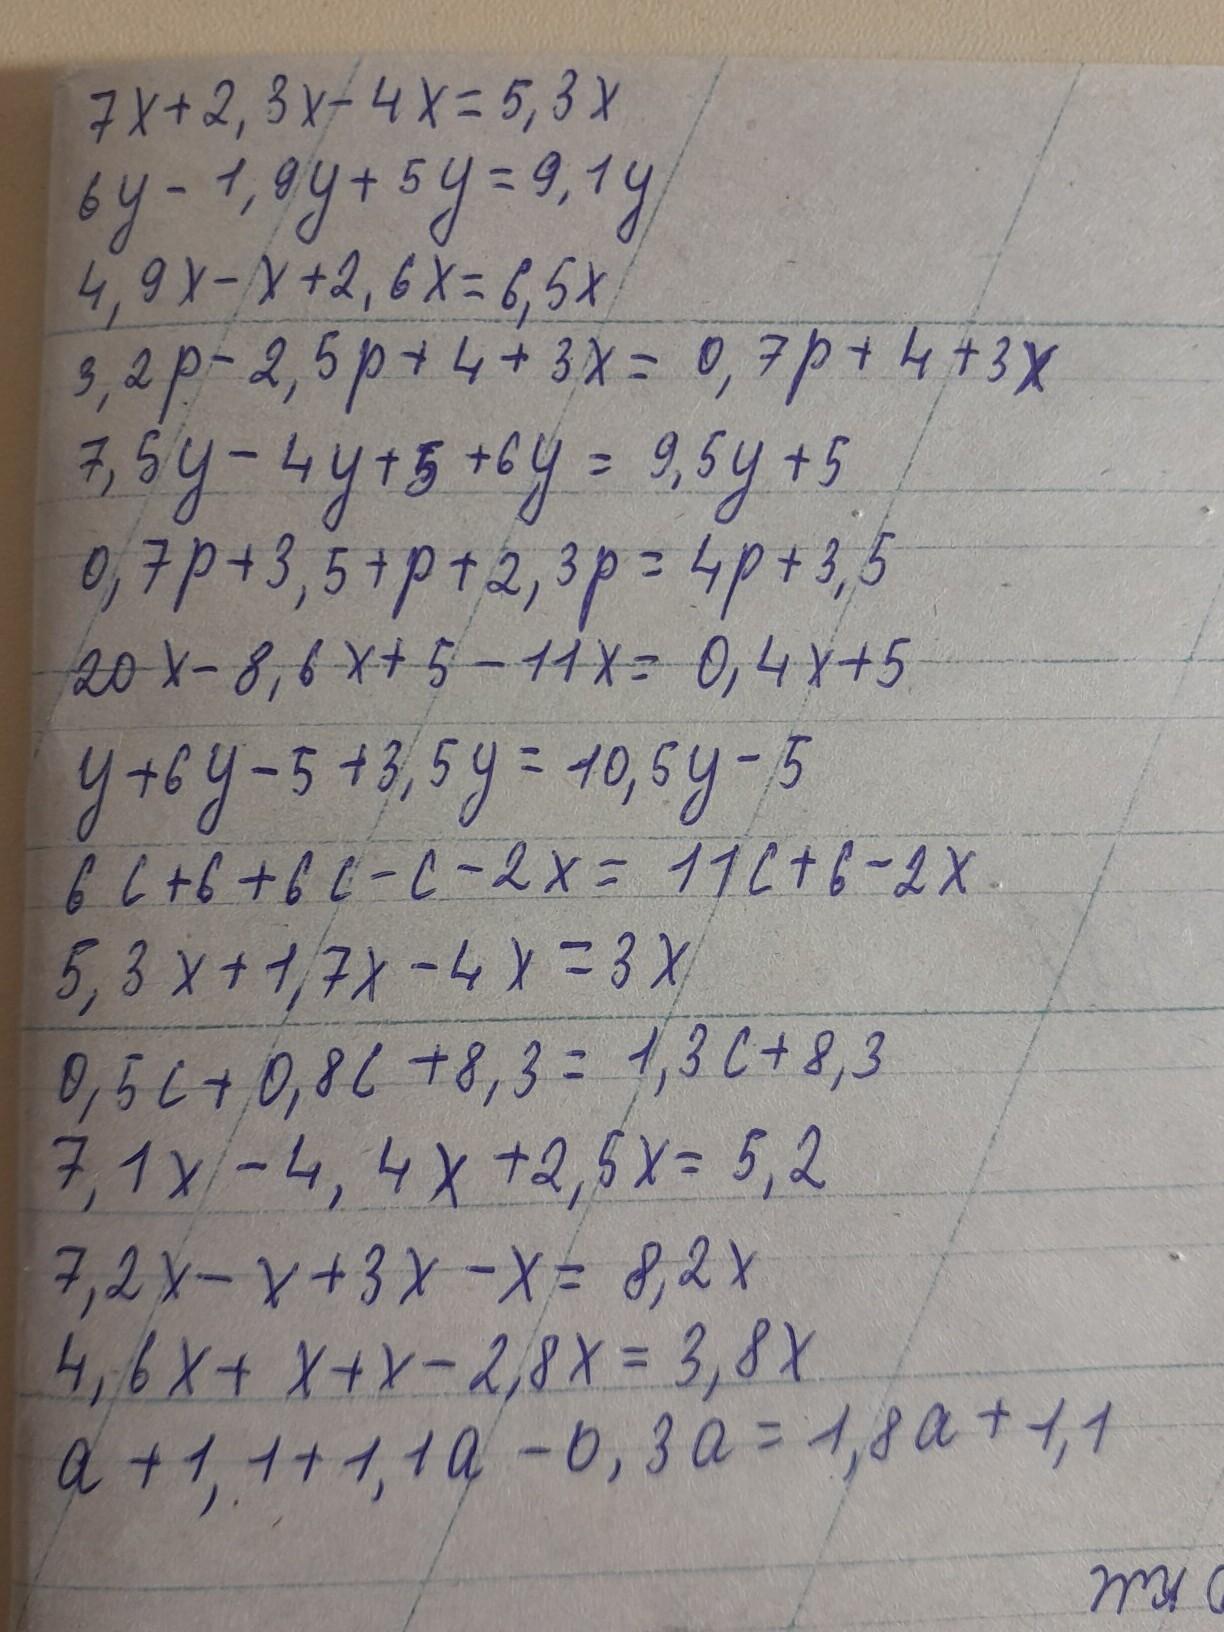 7x+2,3x-4x=5,3x
6y-1,9y+5y=9,1y
4,9x-x+2,6x=6,5x
3,2p-2,5p+4+3x= 0,7p+4+3x
7,5y-4y+5+6y= 9,5y+5
0,7p+3,5+p+2,3p=4p+3,5
20x-8,6x+5-11x= 0,4x+5
y+6y-5+3,5y=10,5y-5
6c+6+6c-c-2x= 11c+6-2x
5,3x+1,7x-4x=3x
0,5c+0,8c+8,3= 1,3c+8,3
7,1x-4,4x+2,5x=5,2
7,2x-x+3x-x= 8,2x
4,6x+x+x-2,8x=3,8x
a+1,1+1,1a-0,3a=1,8a+1,1